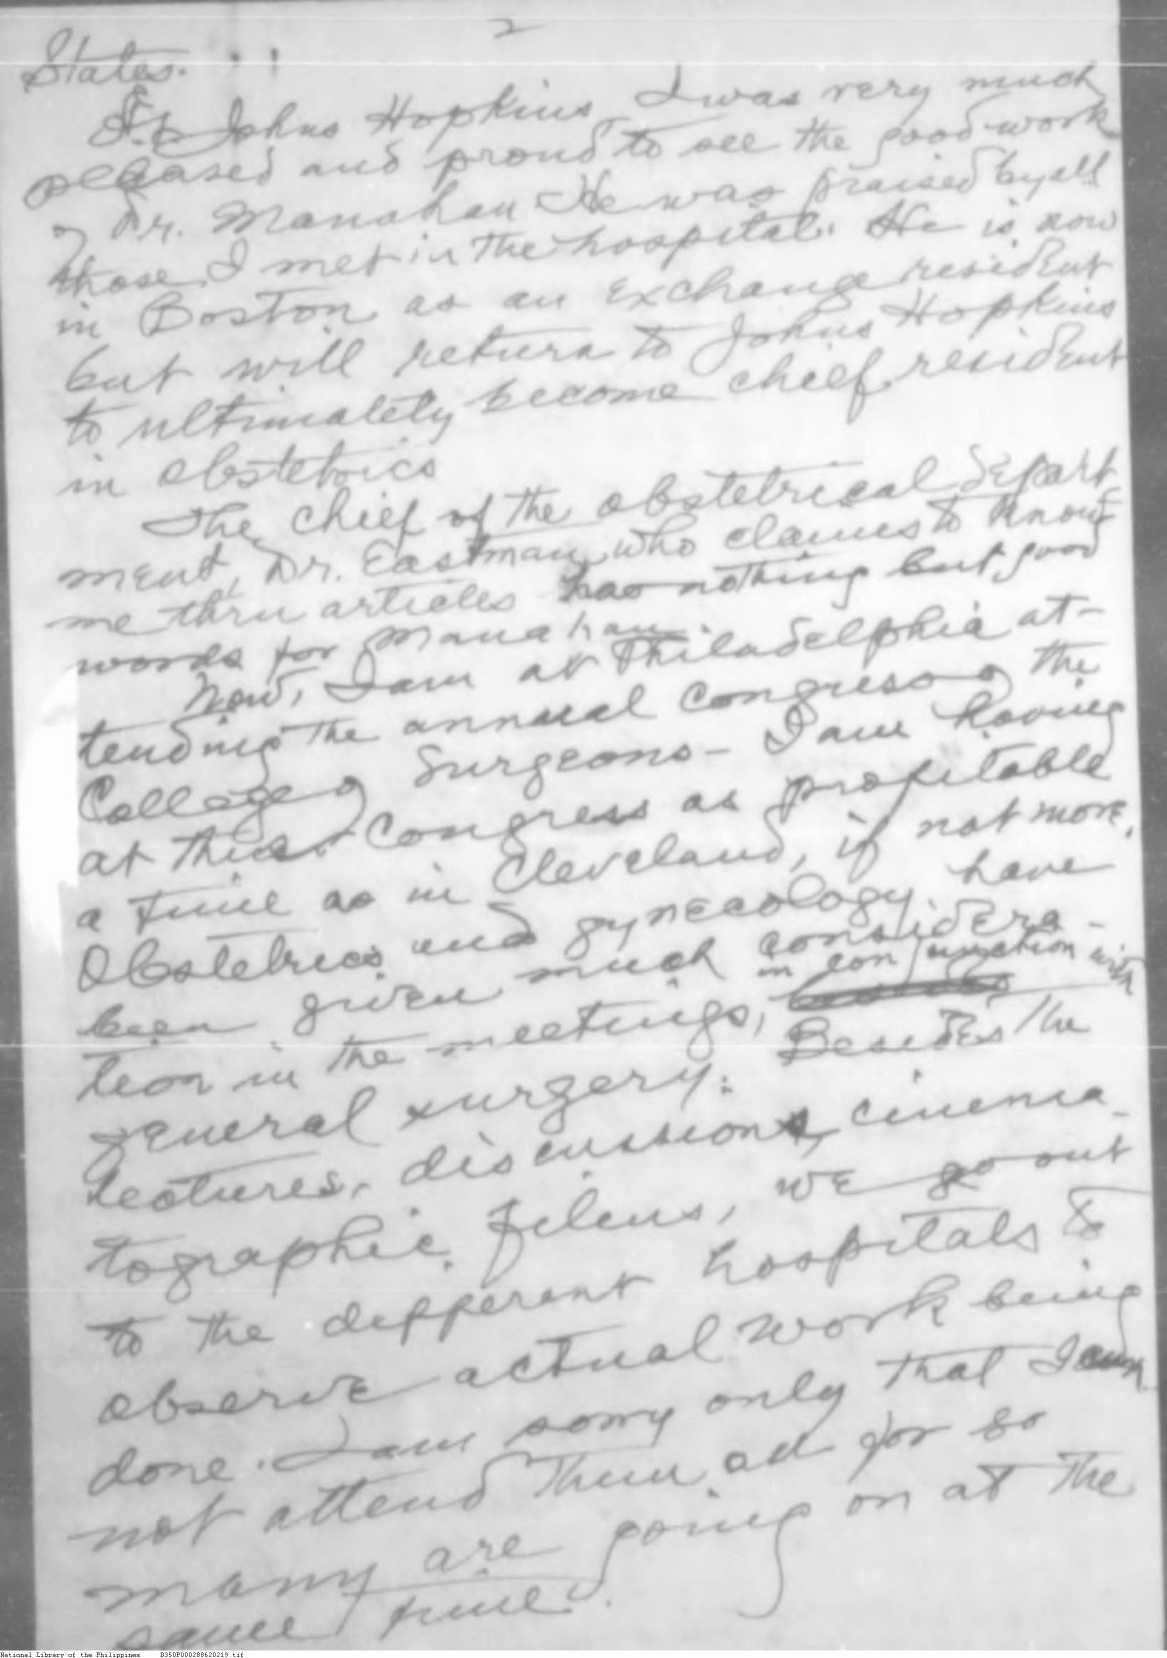 2
States.
At Johns Hopkins, I was very much
pleased and proud to see the good work
of Dr. Manahan. He was praised by all
those I met in the hospital. He is now
in Boston as an exchange resident
but will return to Johns Hopkins
to ultimately become chief resident
in obstetrics
The chief of the obstetrical depart
ment, Dr. Eastman, who claims to know
me thru articles has nothing but good
words for Manahan.
Now, I am at Philadelphia at-
tending the annual congress of the
College of Surgeons - I am having
at this Congress as profitable
a time as in Cleveland, if not more.
Obstetrics and gynecology have
been given much considera-
tion in the meetings, in conjunction with
general surgery. Besides the
lectures, discussions, cinema-
tographic films, we go out
to the different hospitals to
observe actual work being
done. I am sorry only that I can
not attend them all for so
many are going on at the
same time.
National Library of the Philippines D350P000288620219.tif